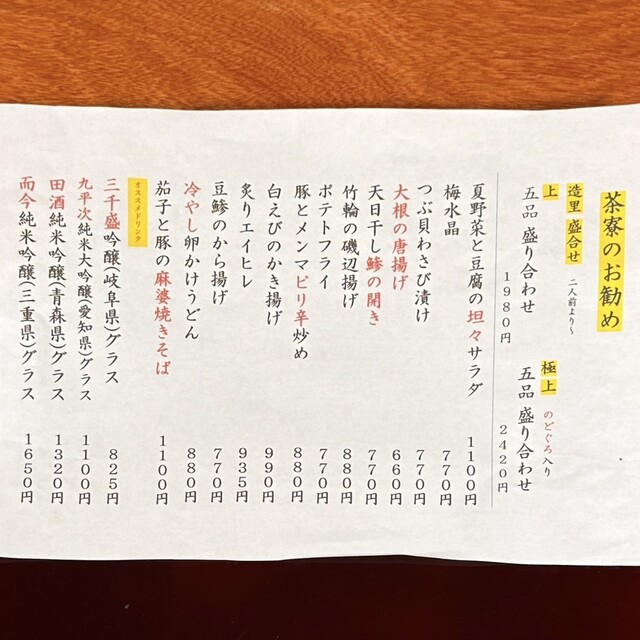 茶寮のお勧め
造里 盛合せ 二人前より〜
上
五品 盛り合わせ
1980円
極上 のどぐろ入り
五品 盛り合わせ
2420円
夏野菜と豆腐の坦々サラダ 1100円
梅水晶 770円
つぶ貝わさび漬け 770円
大根の唐揚げ 660円
天日干し鯵の開き 770円
竹輪の磯辺揚げ 880円
ポテトフライ 770円
豚とメンマピリ辛炒め 880円
白えびのかき揚げ 990円
炙りエイヒレ 935円
豆鯵のから揚げ 770円
冷やし卵かけうどん 880円
茄子と豚の麻婆焼きそば 1100円
オススメドリンク
三千盛吟醸(岐阜県)グラス 825円
九平次純米大吟醸(愛知県)グラス 1100円
田酒純米吟醸(青森県)グラス 1320円
而今純米吟醸(三重県)グラス 1650円